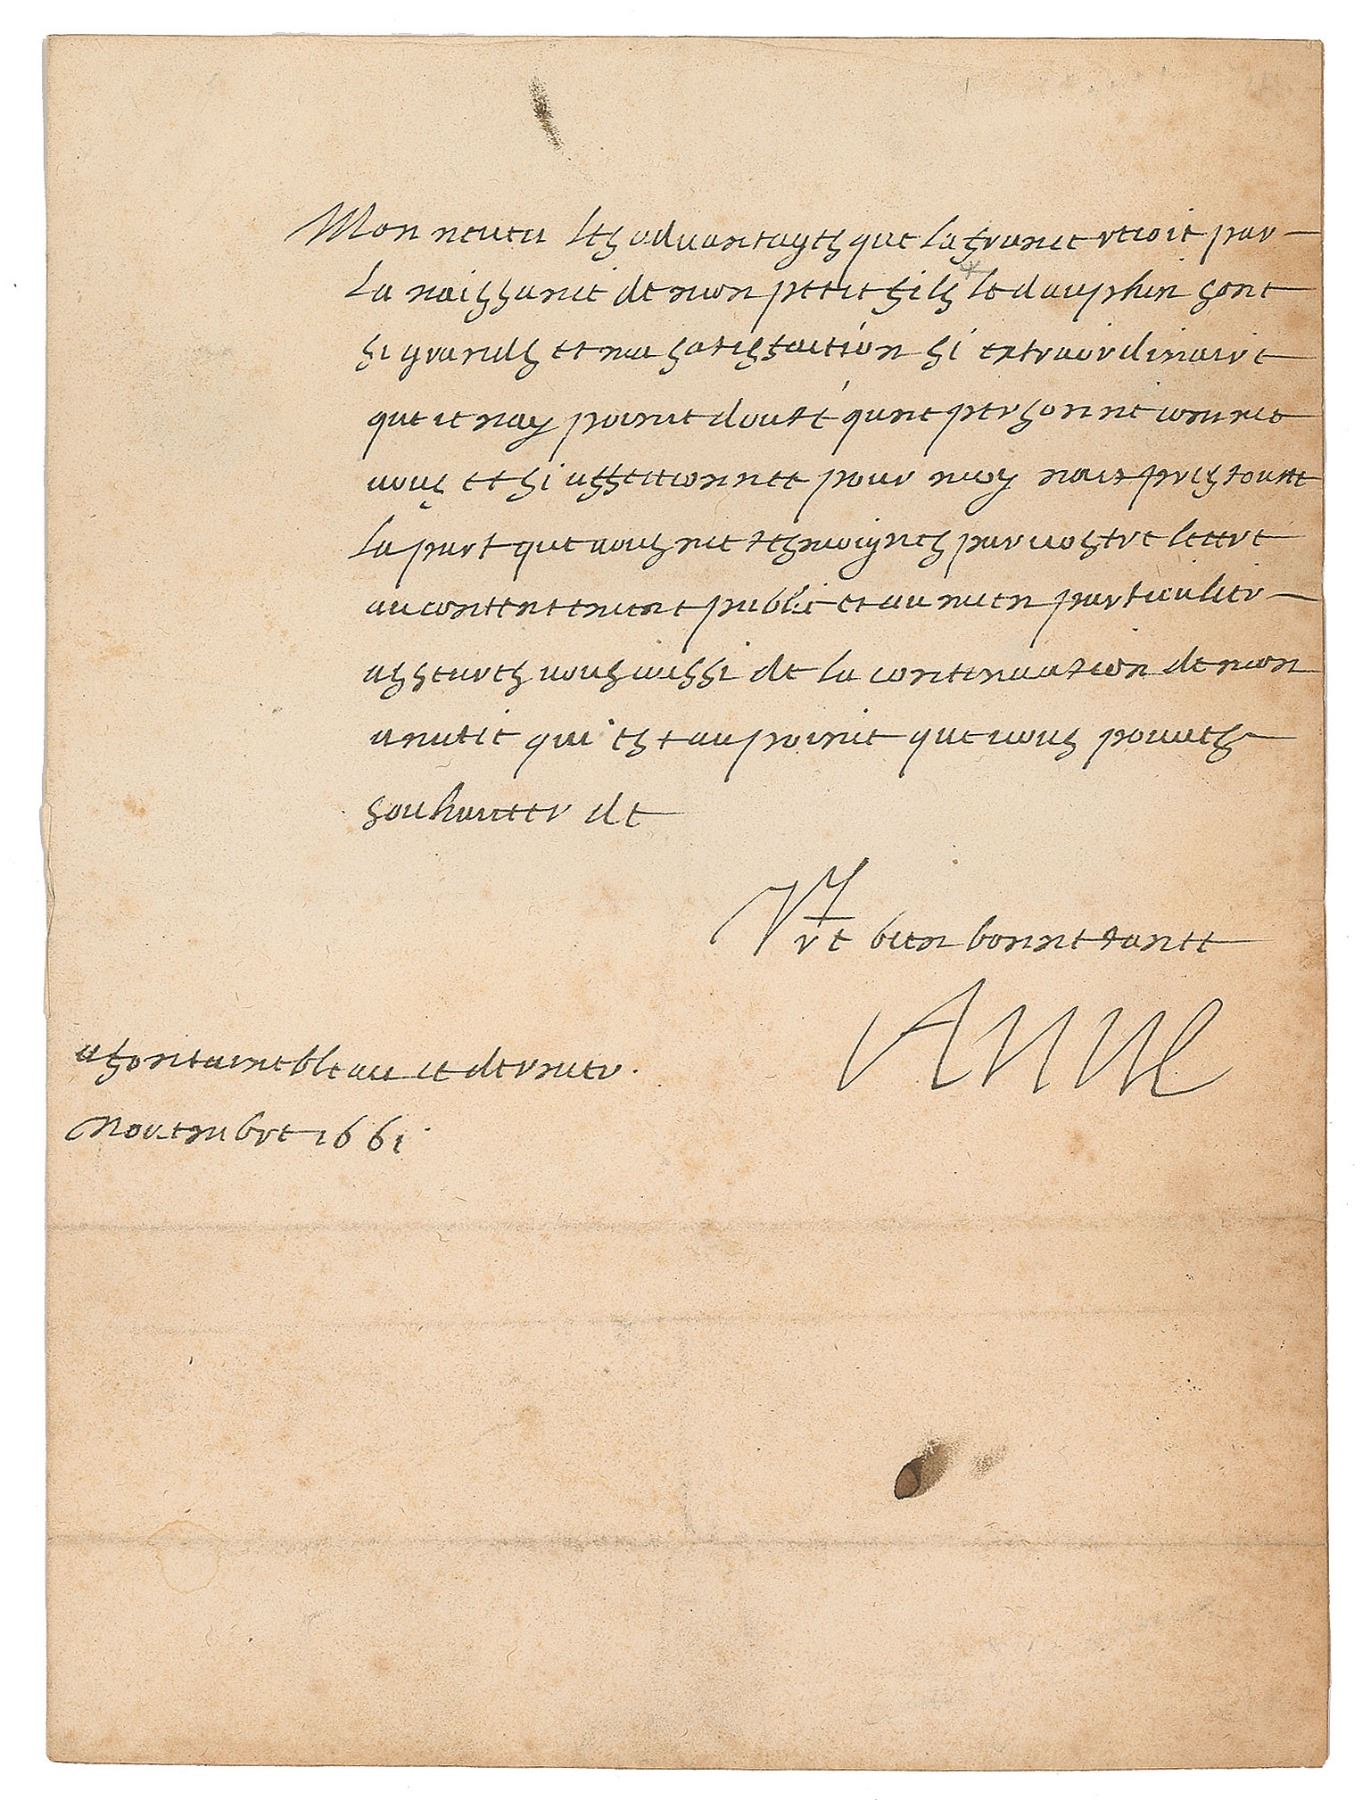 Mon neueu les aduantages que la france recoit par
la naissance de mon petit fils le dauphin sont
si grands et ma satisfaction si extraordinaire
que ie nay point douté qune personne comme
uous et si affectionnee pour moy nait pris toutte
la part que uous me tesmoignes par uostre lettre
au contentement public et au mien particulier
asseures uous aussi de la continuation de mon
amitie qui est au point que uous pouues
souhaitter de
Vre bien bonne tante
Anne
a fontainebleau ce dernier
Novembre 1661